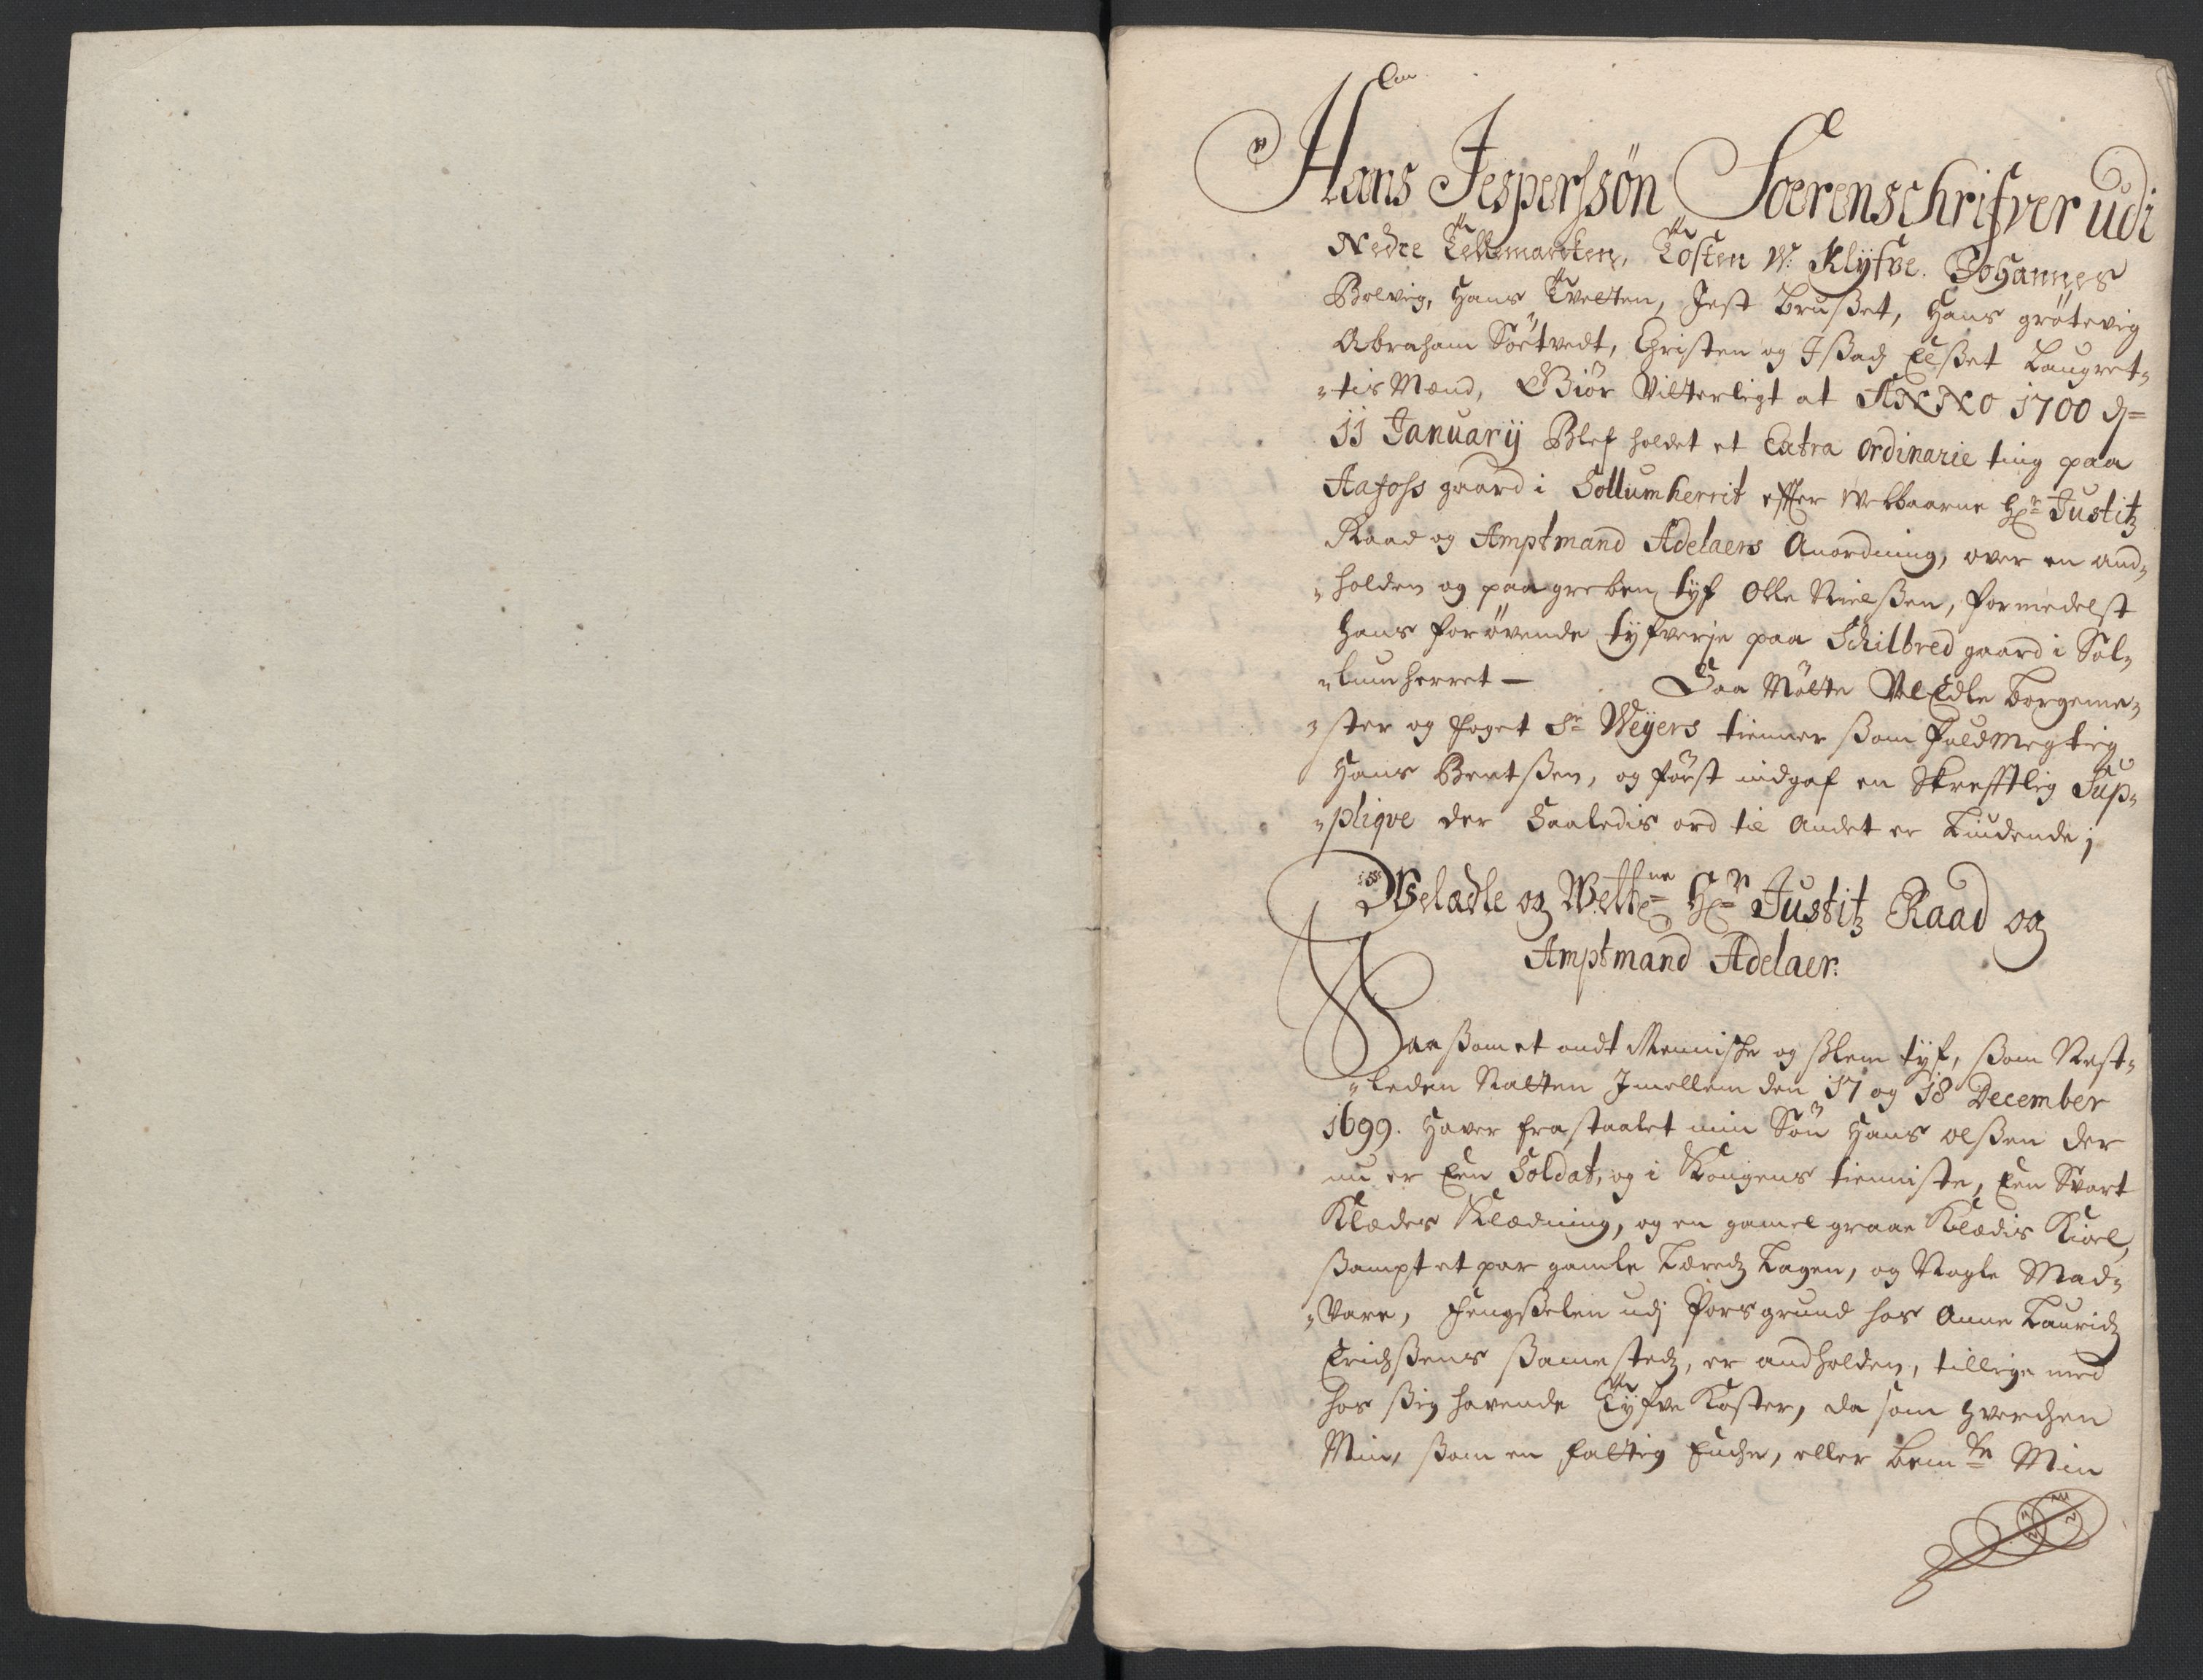 Hans Jesperssøn Soerenschrifver udi
Nedre Tellemarcken, Tosten W: Klyfve. Johannes
Bolvig, Hans Tvetten, Jest Brusset, Hans grøtevig
Abraham Søetvedt, Christen og Issach Elset Laugret¬
¬tis Mænd, Giør Vitterligt at ANNO 1700 d=
11 Januarij Blef holdet et Extra Ordinarie ting paa
Aafoss gaard i Sollumherrit effter Welbaarne Hr Justitz
Raad og Amptmand Adelaers Anordning, over en and¬
¬holden og paagreben tyf Olle Nielssen, formedelst
hans forøvende tyfverje paa Schilbred gaard i Sol¬
¬lumherret — Saa Møtte Vel Edle borgeme¬
¬ster og foget Sr Weyers tienner ssom fuldmegtig
Hans Bentssen, og først indgaf en Skrefftlig Sup¬
¬plique der Saaledis ord til Andet er Liudende;
Weladle og Welbne Hr Justitz Raad og
Amptmand Adelaer.
Saa ssom et ondt Menniske og sslem tyf, ssom Nest¬
¬leden Natten Jmellem den 17 og 18 December
1699. Haver frastaalet min Søn Hans olssen der
nu er Een Soldat, og i Kongens tienniste, Een Svart
Klædes Klædning, og en gamel graae Klædis Kioel,
ssampt et par gamle Læredz Lagen, og Nogle Mad¬
¬Vare, fengsselen udj Porsgrund hos Anne Lauridz
Erichssens ssamestedz, er andholden, tillige med
hos ssig havende Tyfve Koster, da som hverchen
Min, ssom en fattig Enche, eller bemte Min